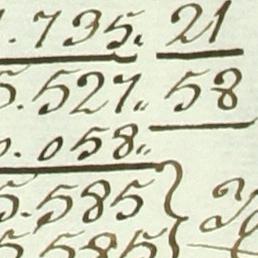 .735. 21
5.527. 58
0.058.
5.585
5.585